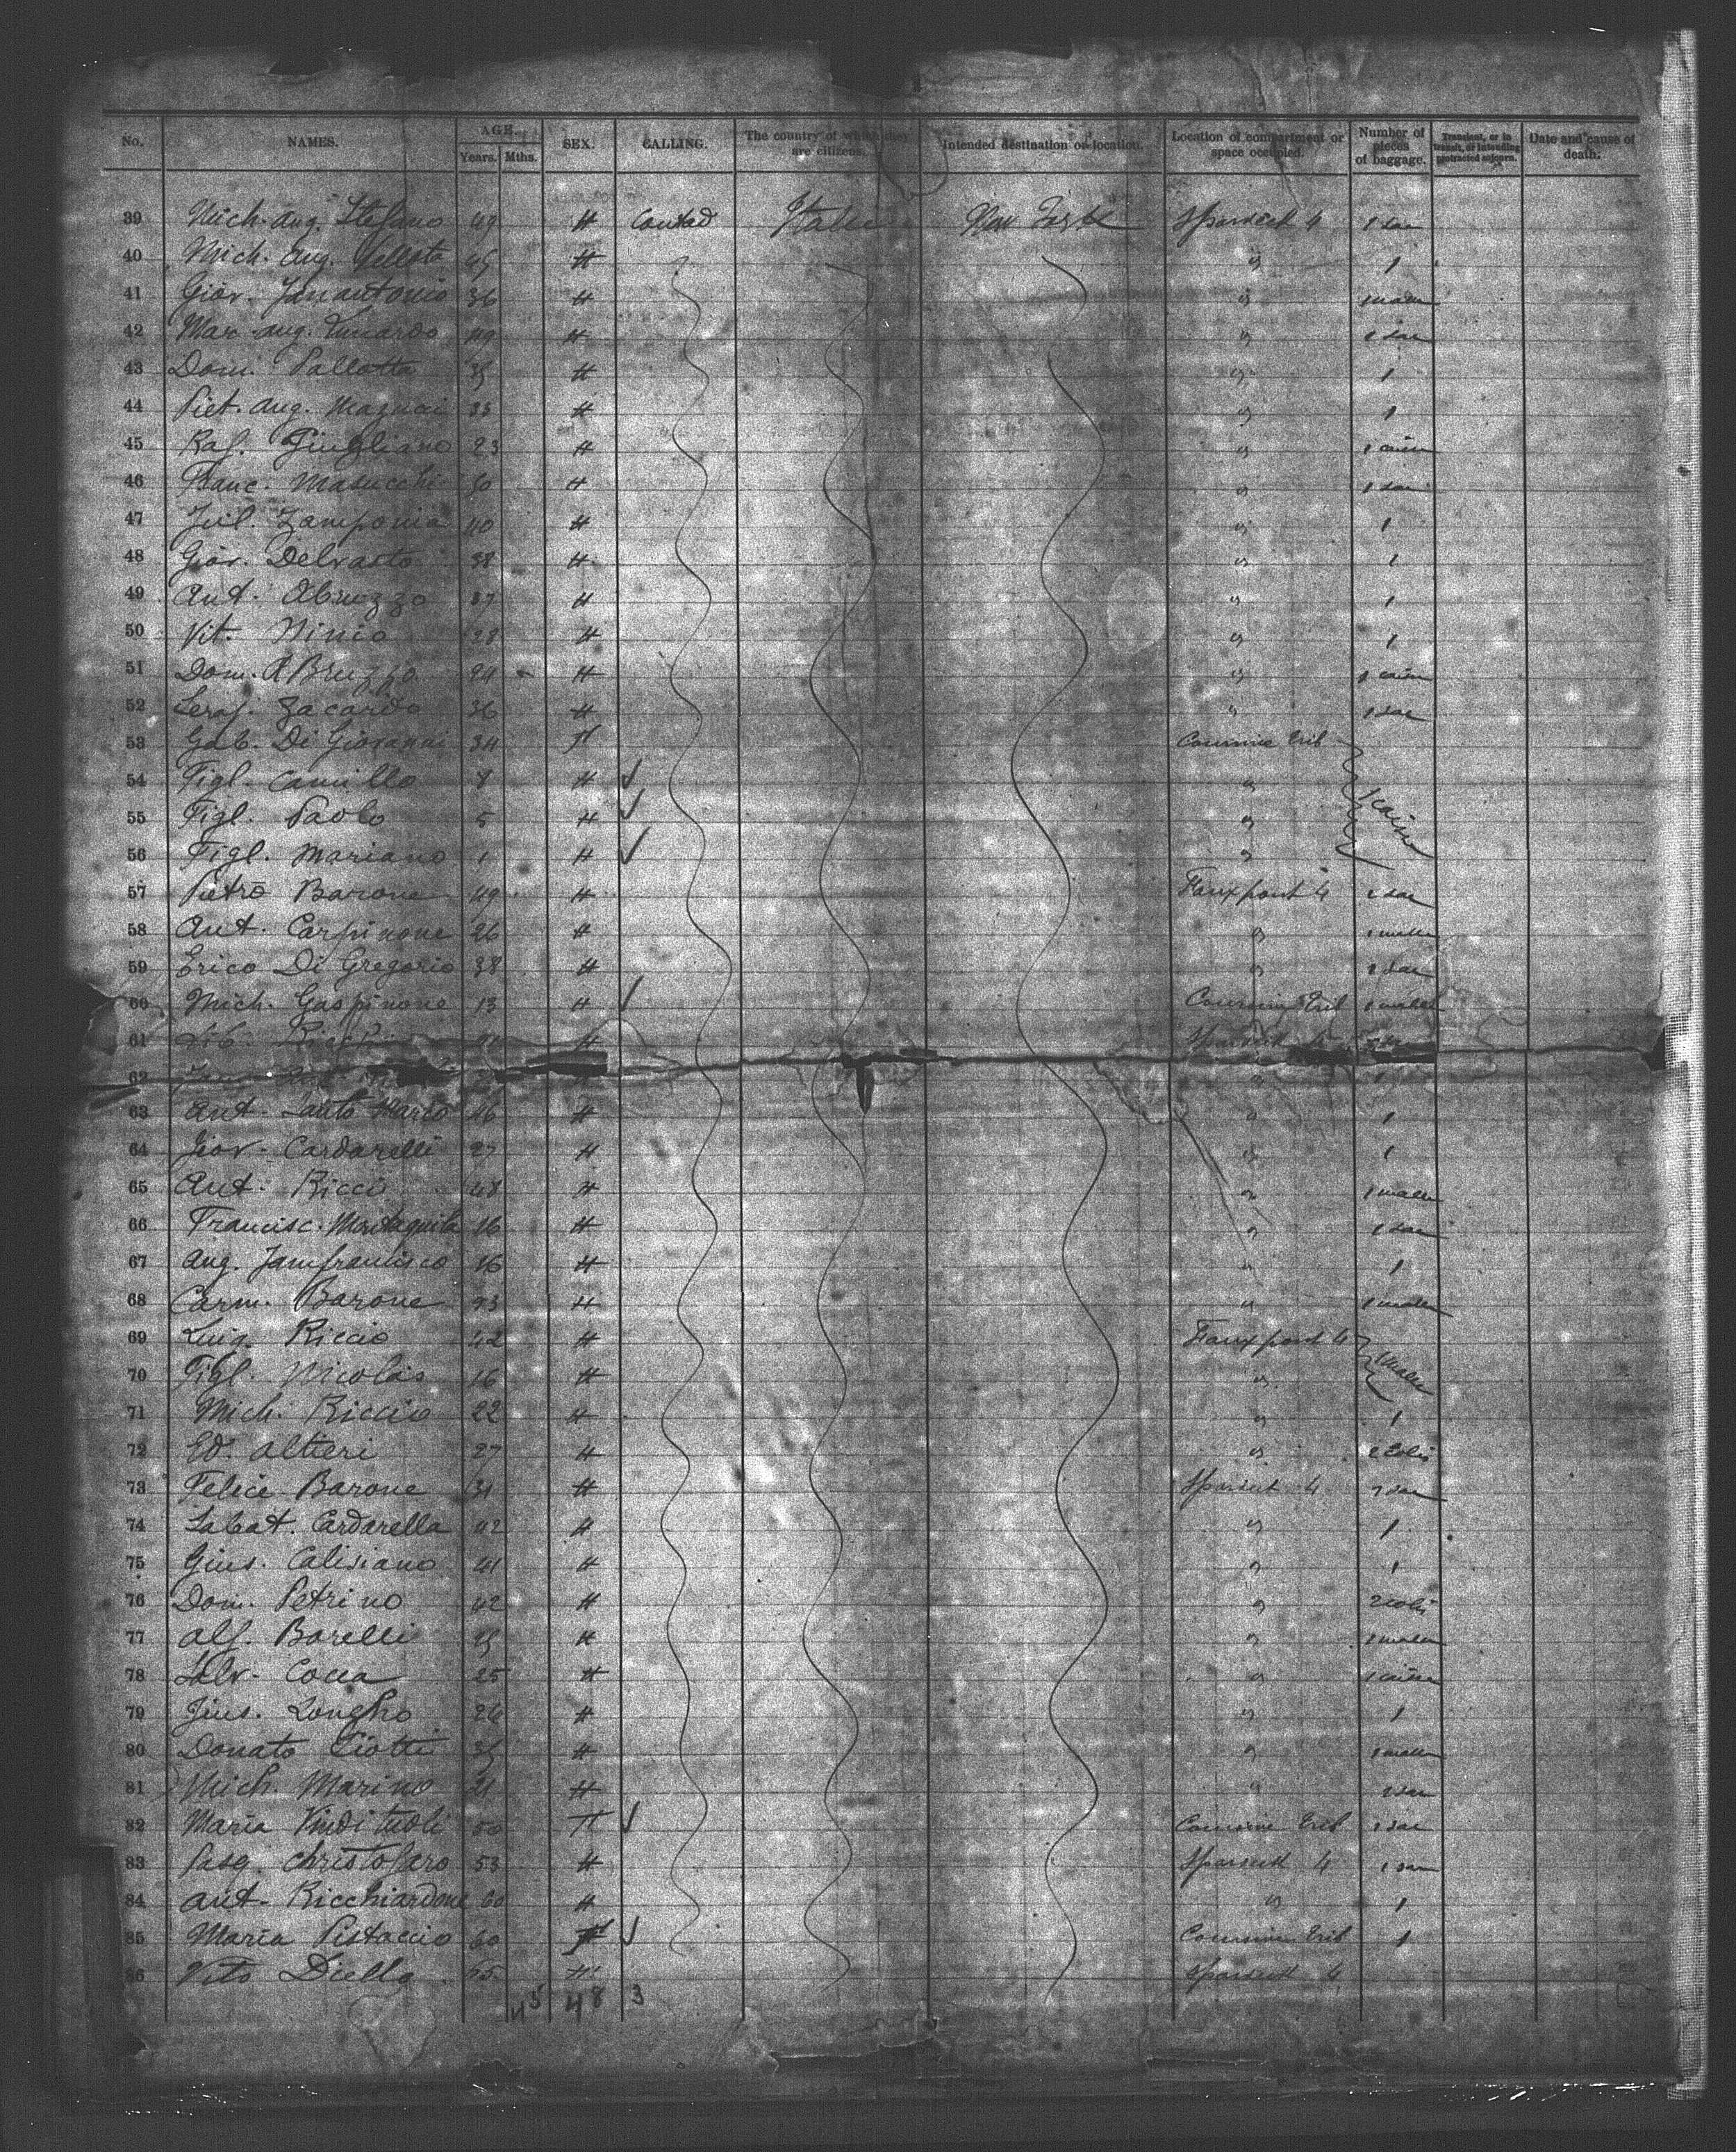 No. NAMES. AGE. Years. Mths. SEX. CALLING. The country of which they are citizens. Intended destination or location. Location of compartment or space occupied. Number of pieces of baggage. Transient, or in transit, or intending protracted sojourn. Date and cause of death.
39 Mich. Ang. Stefano 49 H Contad Italie New York Sparseck 4 1 sac
40 Mich. Ang. 45 H " 1
41 Giov. Janantonio 36 H " 1 malle
42 Mar. Ang. 49 H " 1 sac
43 Dom. Pallotta 35 H " 1
44 Piet. Ang. 33 H " 1
45 Raf. 23 H " 1 caisse
46 Franc. Masucchi 50 H " 1 sac
47 Jul. Zamponia 40 H " 1
48 Giov. Delvasto 38 H " 1
49 Ant. Abruzzo 37 H " 1
50 Vit. Ninio 28 H " 1
51 Dom. ABruzzo 24 H " 1 caisse
52 Seraf. Zacardo 36 H " 1 sac
53 Gab. Di Giovanni 34 F Coursive Trib
54 Figl. Camillo 8 H ✓ " 1 caisse
55 Figl. Paolo 5 H ✓ "
56 Figl. Mariano 1 H ✓ "
57 Pietro Barone 49 H Faux pont 4 2 sac
58 Ant. Carpinone 26 H " 1 malle
59 Erico Di Gregorio 38 H " 1 sac
60 Mich. Gaspinone 13 H ✓ Coursive Trib 1 malle
61 H Sparseck 4
62 " 1
63 Ant. Santo Marco 46 H " 1
64 Giov. Cardarelli 27 H " 1
65 Ant. Ricci 48 H " 1 malle
66 Francisc. Montaquila 16 H " 1 sac
67 Ang. Jamfrancisco 16 H " 1
68 Carm. Barone 23 H " 1 malle
69 Luig. Riccio 42 H Faux pont 4
70 Figl. Nicolas 16 H " 1 malle
71 Mich. Riccio 22 H " 1
72 Ed. Altieri 27 H " 2 colis
73 Felice Barone 31 H Sparseck 4 1 sac
74 Sabat. Cardarella 42 H " 1
75 Gius. Calisiano 41 H " 1
76 Dom. Petrino 42 H " 2 colis
77 Alf. Borelli 25 H " 1 malle
78 Salv. Cocca 25 H " 1 caisse
79 Gius. Longho 26 H " 1
80 Donato Liotti 35 H " 1 malle
81 Mich. Marino 21 H " 1 sac
82 Maria 50 F ✓ Coursive Trib 1 sac
83 Pasq. Christofaro 53 H Sparseck 4 1 sac
84 Ant. Ricchiardone 60 H " 1
85 Maria Pistaccio 60 F ✓ Coursive Trib 1
86 Vito Diello 25 H Sparseck 4
45 48 3